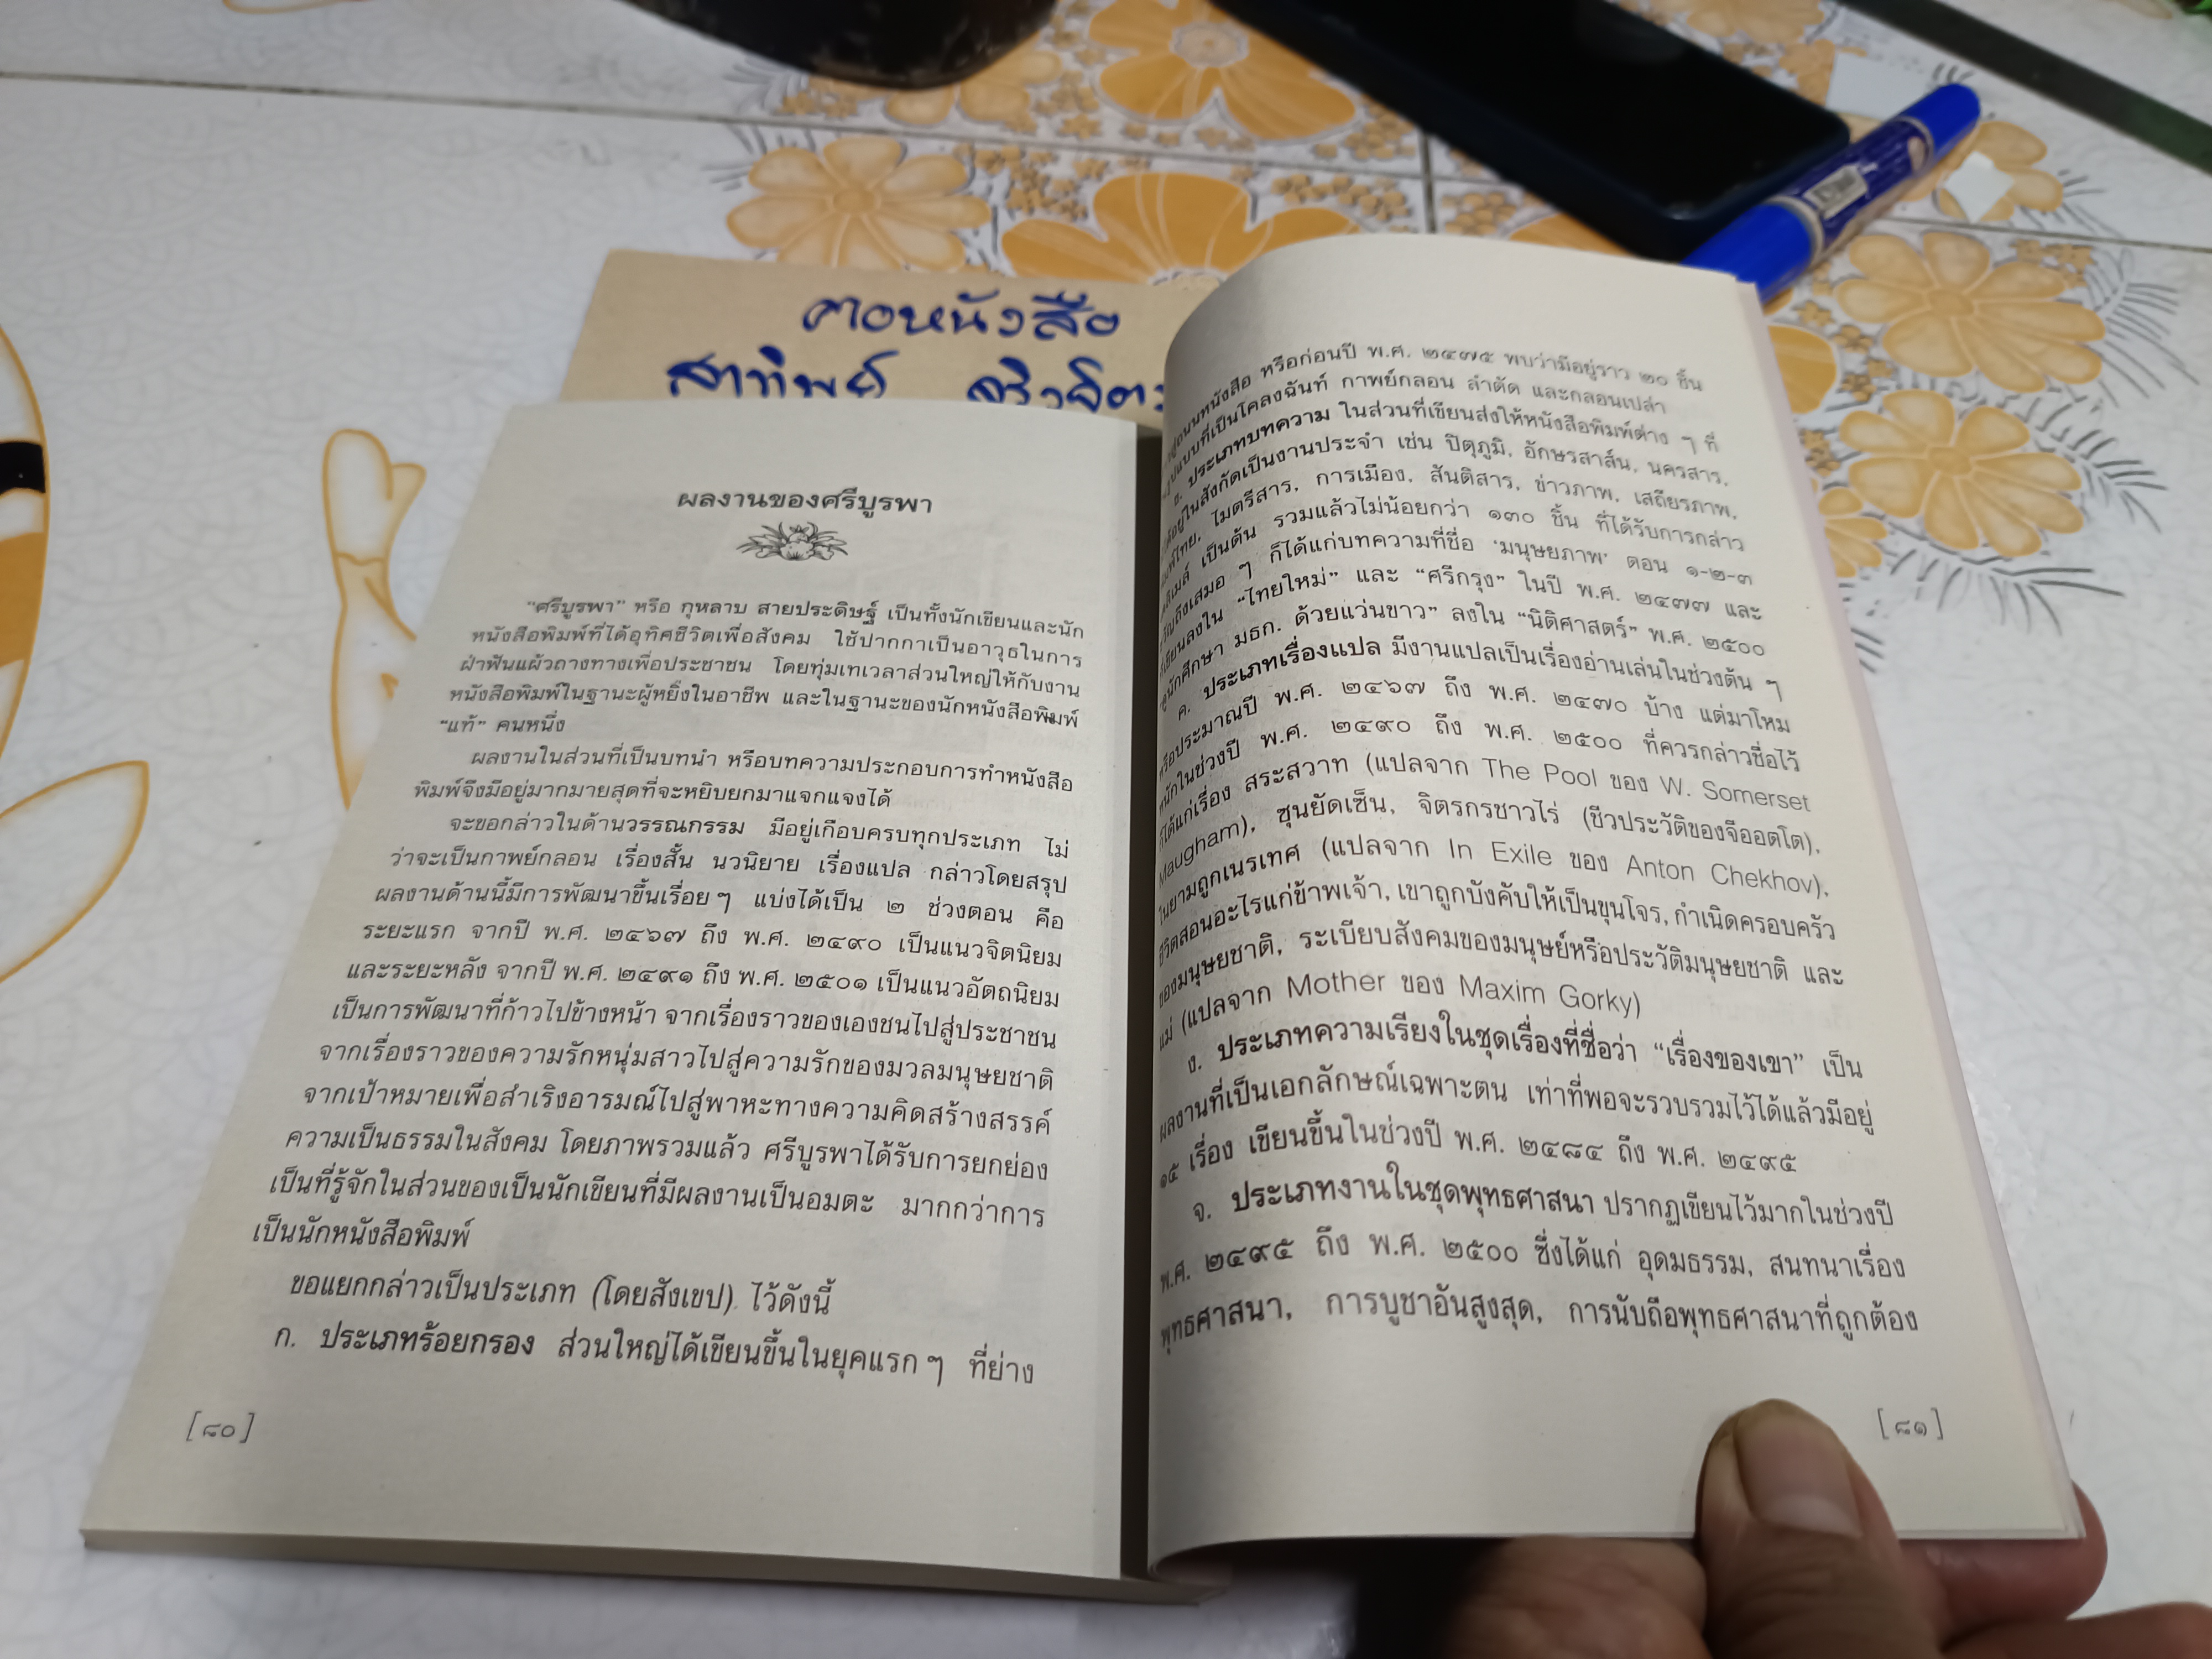 ตาอหนังสือ
สาทิพย์
ผลงานของศรีบูรพา
“ศรีบูรพา” หรือ กุหลาบ สายประดิษฐ์ เป็นทั้งนักเขียนและนัก
หนังสือพิมพ์ที่ได้อุทิศชีวิตเพื่อสังคม ใช้ปากกาเป็นอาวุธในการ
ฝ่าฟันแผ้วถางทางเพื่อประชาชน โดยทุ่มเทเวลาส่วนใหญ่ให้กับงาน
หนังสือพิมพ์ในฐานะผู้หยิ่งในอาชีพ และในฐานะของนักหนังสือพิมพ์
“แท้” คนหนึ่ง
ผลงานในส่วนที่เป็นบทนำ หรือบทความประกอบการทำหนังสือ
พิมพ์จึงมีอยู่มากมายสุดที่จะหยิบยกมาแจกแจงได้
จะขอกล่าวในด้านวรรณกรรม มีอยู่เกือบครบทุกประเภท ไม่
ว่าจะเป็นกาพย์กลอน เรื่องสั้น นวนิยาย เรื่องแปล กล่าวโดยสรุป
ผลงานด้านนี้มีการพัฒนาขึ้นเรื่อย ๆ แบ่งได้เป็น ๒ ช่วงตอน คือ
ระยะแรก จากปี พ.ศ. ๒๔๖๗ ถึง พ.ศ. ๒๔๙๐ เป็นแนวจิตนิยม
และระยะหลัง จากปี พ.ศ. ๒๔๙๑ ถึง พ.ศ. ๒๕๐๑ เป็นแนวอัตถนิยม
เป็นการพัฒนาที่ก้าวไปข้างหน้า จากเรื่องราวของเอกชนไปสู่ประชาชน
จากเรื่องราวของความรักหนุ่มสาวไปสู่ความรักของมวลมนุษยชาติ
จากเป้าหมายเพื่อสำเริงอารมณ์ไปสู่พาหะทางความคิดสร้างสรรค์
ความเป็นธรรมในสังคม โดยภาพรวมแล้ว ศรีบูรพาได้รับการยกย่อง
เป็นที่รู้จักในส่วนของเป็นนักเขียนที่มีผลงานเป็นอมตะ มากกว่าการ
เป็นนักหนังสือพิมพ์
ขอแยกกล่าวเป็นประเภท (โดยสังเขป) ไว้ดังนี้
ก. ประเภทร้อยกรอง ส่วนใหญ่ได้เขียนขึ้นในยุคแรก ๆ ที่ย่าง
[๘๐]
หรือก่อนปี พ.ศ. ๒๔๗๕ พบว่ามีอยู่ราว ๒๐ ชิ้น
รูปแบบที่เป็นโคลงฉันท์ กาพย์กลอน ลำตัด และกลอนเปล่า
ข. ประเภทบทความ ในส่วนที่เขียนส่งให้หนังสือพิมพ์ต่าง ๆ ที่
อยู่ในสังกัดเป็นงานประจำ เช่น ปิตุภูมิ, อักษรสาส์น, นครสาร,
ไมตรีสาร, การเมือง, สันติสาร, ข่าวภาพ, เสถียรภาพ,
เป็นต้น รวมแล้วไม่น้อยกว่า ๑๓๐ ชิ้น ที่ได้รับการกล่าว
ถึงเสมอ ๆ ก็ได้แก่บทความที่ชื่อ ‘มนุษยภาพ’ ตอน ๑-๒-๓
เขียนลงใน “ไทยใหม่” และ “ศรีกรุง” ในปี พ.ศ. ๒๔๗๗ และ
ดูนักศึกษา มธก. ด้วยแว่นขาว” ลงใน “นิติศาสตร์” พ.ศ. ๒๕๐๐
ค. ประเภทเรื่องแปล มีงานแปลเป็นเรื่องอ่านเล่นในช่วงต้น ๆ
หรือประมาณปี พ.ศ. ๒๔๖๗ ถึง พ.ศ. ๒๔๗๐ บ้าง แต่มาโหม
หนักในช่วงปี พ.ศ. ๒๔๙๐ ถึง พ.ศ. ๒๕๐๐ ที่ควรกล่าวชื่อไว้
ก็ได้แก่เรื่อง สระสวาท (แปลจาก The Pool ของ W. Somerset
Maugham), ซุนยัดเซ็น, จิตรกรชาวไร่ (ชีวประวัติของจีออตโต),
ในยามถูกเนรเทศ (แปลจาก In Exile ของ Anton Chekhov),
ชีวิตสอนอะไรแก่ข้าพเจ้า, เขาถูกบังคับให้เป็นขุนโจร, กำเนิดครอบครัว
ของมนุษยชาติ, ระเบียบสังคมของมนุษย์หรือประวัติมนุษยชาติ และ
แม่ (แปลจาก Mother ของ Maxim Gorky)
ง. ประเภทความเรียงในชุดเรื่องที่ชื่อว่า “เรื่องของเขา” เป็น
ผลงานที่เป็นเอกลักษณ์เฉพาะตน เท่าที่พอจะรวบรวมไว้ได้แล้วมีอยู่
๑๕ เรื่อง เขียนขึ้นในช่วงปี พ.ศ. ๒๔๘๔ ถึง พ.ศ. ๒๔๙๕
จ. ประเภทงานในชุดพุทธศาสนา ปรากฏเขียนไว้มากในช่วงปี
พ.ศ. ๒๔๙๕ ถึง พ.ศ. ๒๕๐๐ ซึ่งได้แก่ อุดมธรรม, สนทนาเรื่อง
พุทธศาสนา, การบูชาอันสูงสุด, การนับถือพุทธศาสนาที่ถูกต้อง
[๘๑]